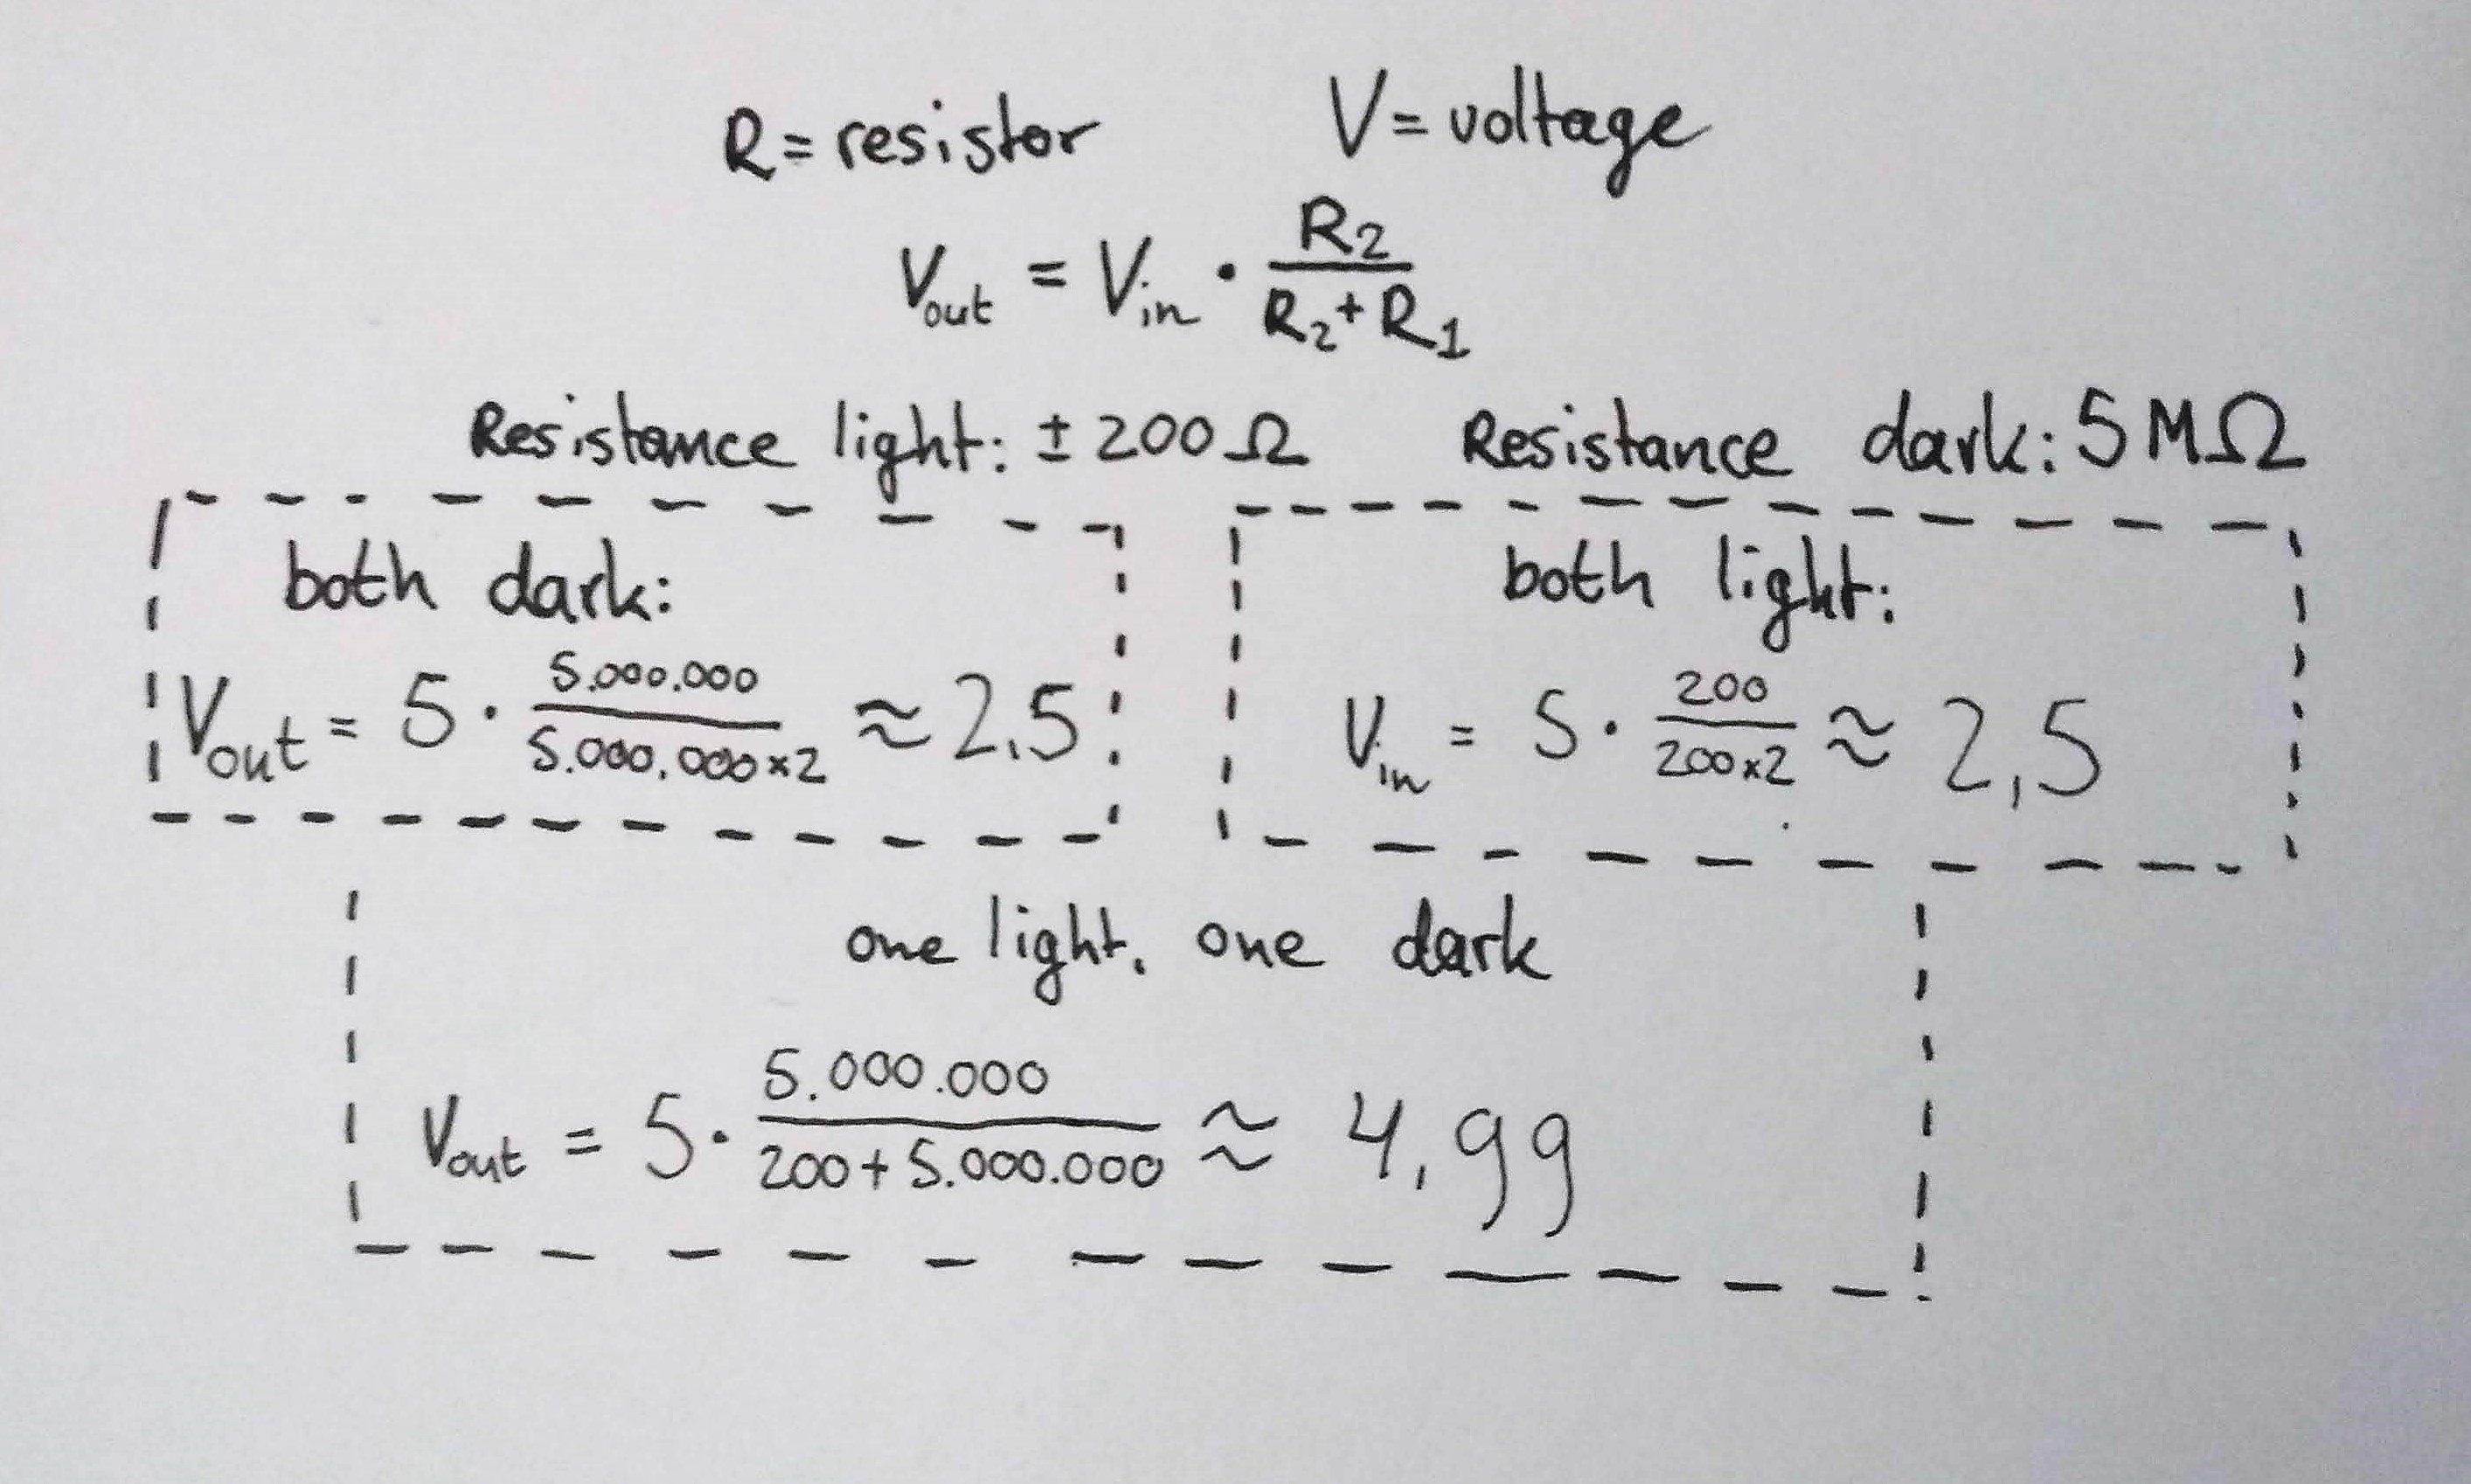 R = resistor V = voltage
Vout = Vin · R2 / R2 + R1
Resistance light: ± 200 Ω Resistance dark: 5 MΩ
both dark:
Vout = 5 · 5.000.000 / 5.000.000 x 2 ≈ 2.5
both light:
Vin = 5 · 200 / 200 x 2 ≈ 2,5
one light, one dark
Vout = 5 · 5.000.000 / 200 + 5.000.000 ≈ 4,99